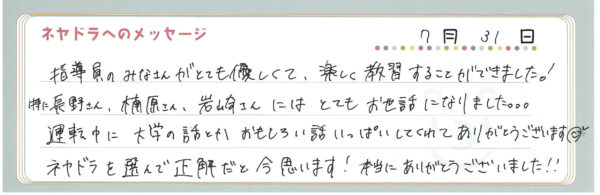 ネヤドラへのメッセージ
7月 31日
指導員のみなさんがとても優しくて、楽しく教習することができました!
特に長野さん、楠原さん、岩崎さんにはとてもお世話になりました。。。
運転中に大学の話とかおもしろい話いっぱいしてくれてありがとうございます
ネヤドラを選んで正解だと今思います!本当にありがとうございました!!